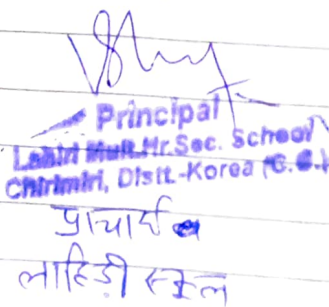 Principal
Lahiri Mult.Hr.Sec. School
Chirimiri, Distt.-Korea (C.G.)
प्राचार्य
लाहिड़ी स्कूल